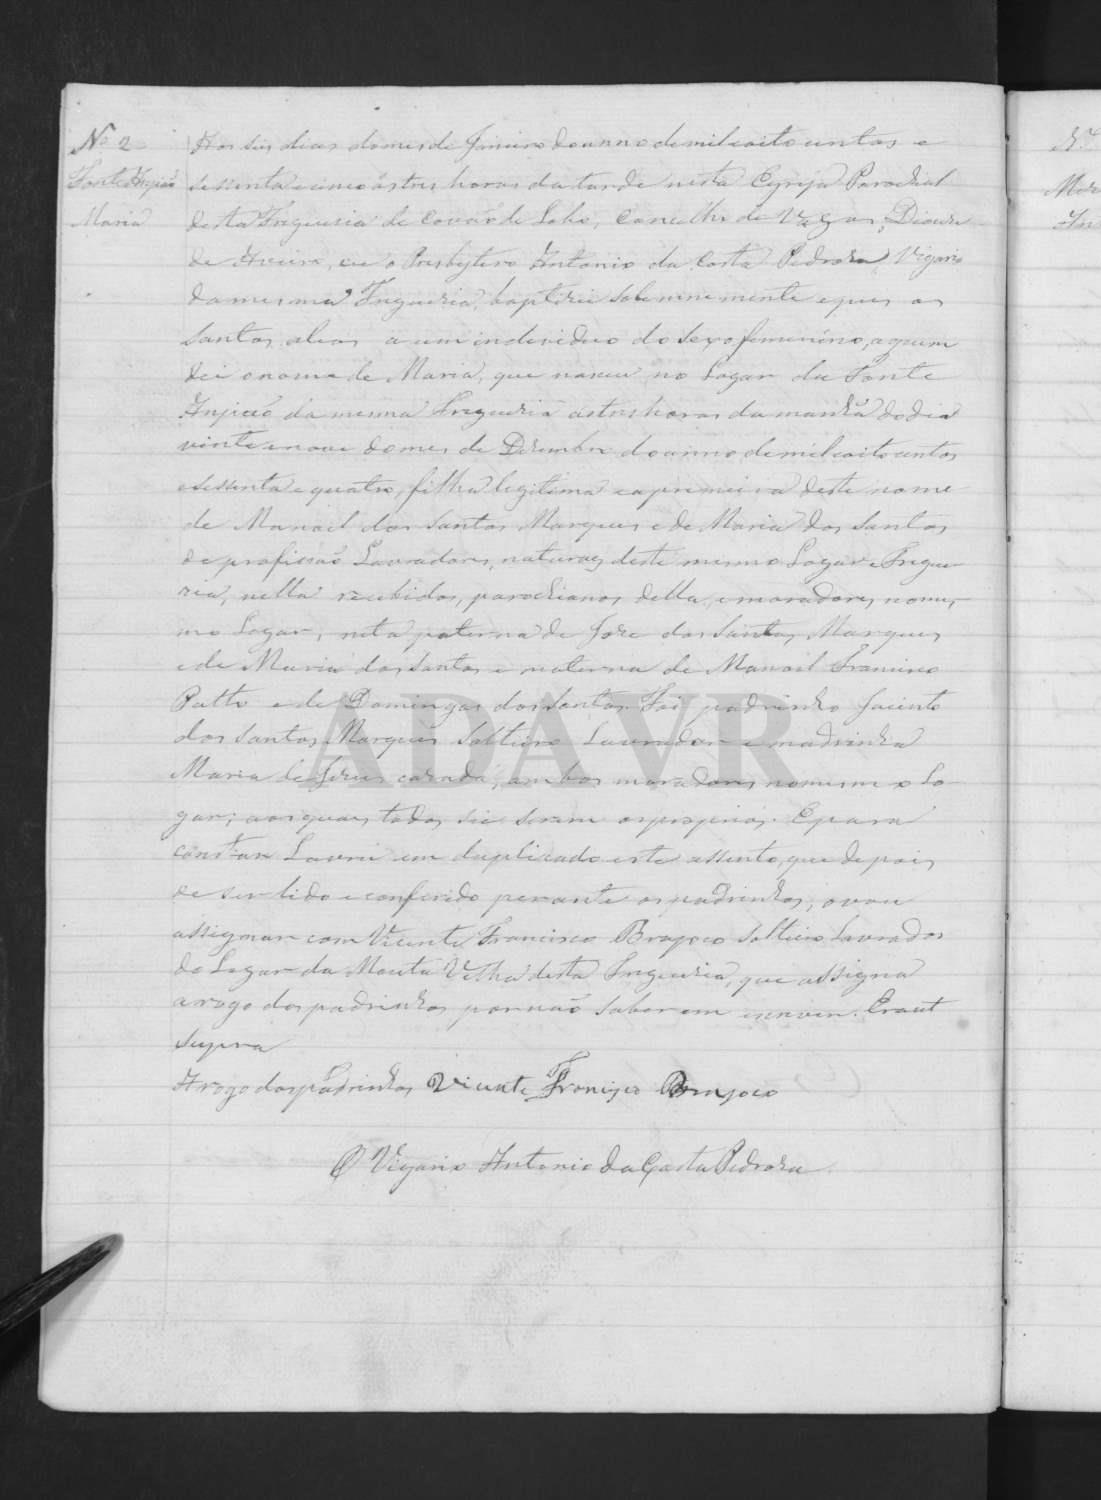 Nº 2
Fonte Angião
Maria
Aos seis dias do mes de Janeiro do anno de mil oito centos e
sessenta e cinco ás tres horas da tarde nesta Egreja Parochial
desta Freguesia de Covão de Lobo, Concelho de Vagos, Diocese
de Aveiro, eu o Presbytero Antonio da Costa Pedroza, Vigario
da mesma Freguesia, baptizei solemnemente e pus os
Santos oleos a um individuo do sexo femenino, a quem
dei o nome de Maria, que nasceu no Logar da Fonte
Angião da mesma Freguesia ás tres horas da manhã do dia
vinte e nove do mes de Dezembro do anno de mil oito centos
e sessenta e quatro, filha legitima e a primeira deste nome
de Manoel dos Santos Marques e de Maria dos Santos
de profissão Lavradores, naturaes deste mesmo Logar e Fregue-
zia, nella recebidos, parochianos della, e moradores no mes-
mo Logar, neta paterna de Joze dos Santos Marques
e de Maria dos Santos e materna de Manoel Francisco
Patto e de Domingas dos Santos. Foi padrinho Jacinto
dos Santos Marques Solteiro Lavrador e madrinha
Maria de Jesus cazada, ambos moradores no mesmo Lo-
gar; aos quaes todos sei serem os proprios. E para
constar Lavrei em duplicado este assento, que depois
de ser lido e conferido perante os padrinhos, o vou
assignar com Vicente Francisco Brajoco Solteiro Lavrador
do Logar da Mouta Velha desta Freguesia, que assigna
a rogo dos padrinhos por não saberem escrever. Era ut
supra
A rogo dos padrinhos Vicente Francisco Brajoco
O Vigario Antonio da Costa Pedroza
ADAVR